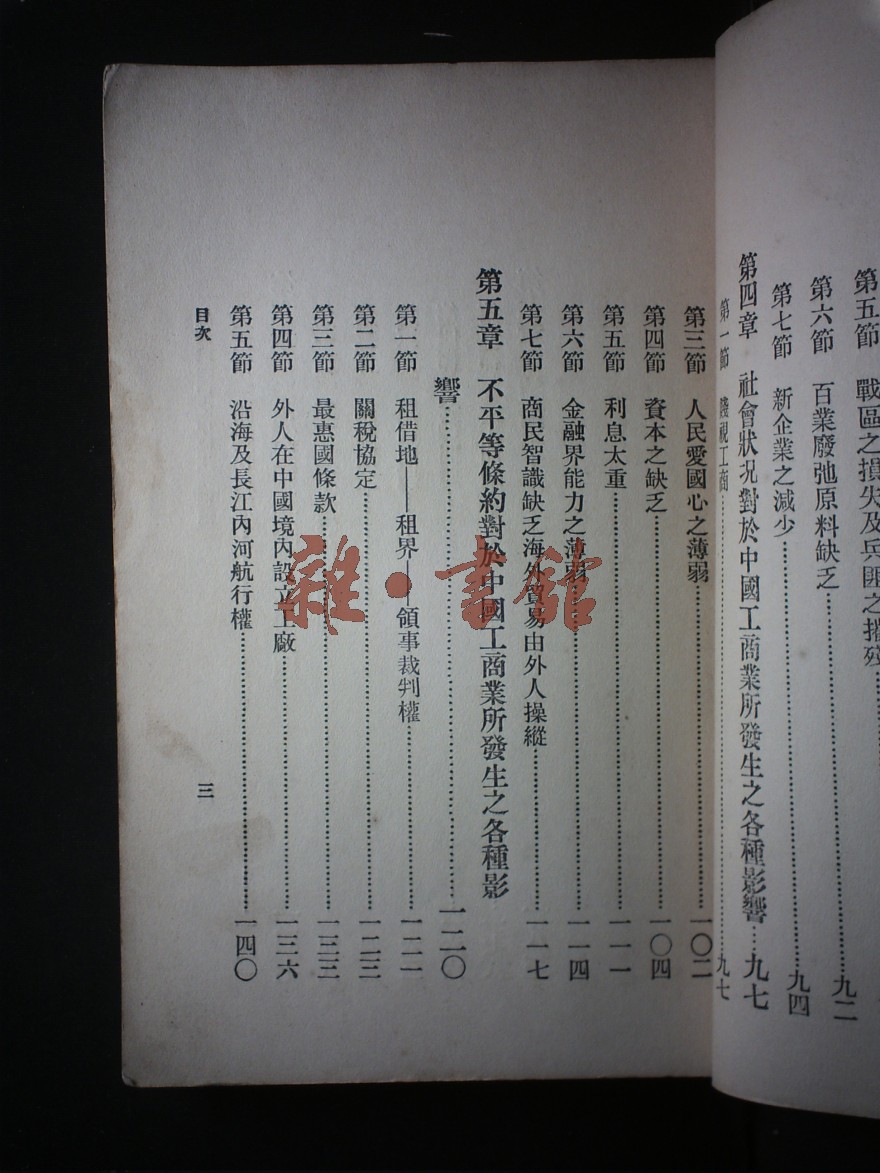 第五節　戰區之損失及兵匪之摧殘
第六節　百業廢弛原料缺乏……九二
第七節　新企業之減少……九四
第四章　社會狀況對於中國工商業所發生之各種影響…九七
第一節　賤視工商……九七
第三節　人民愛國心之薄弱……一〇二
第四節　資本之缺乏……一〇四
第五節　利息太重……一一一
第六節　金融界能力之薄弱……一一四
第七節　商民智識缺乏海外貿易由外人操縱……一一七
第五章　不平等條約對於中國工商業所發生之各種影
響……一二〇
第一節　租借地——租界——領事裁判權……一二一
第二節　關稅協定……一二三
第三節　最惠國條款……一三三
第四節　外人在中國境內設立工廠……一三六
第五節　沿海及長江內河航行權……一四〇
目次
三
雜·書館